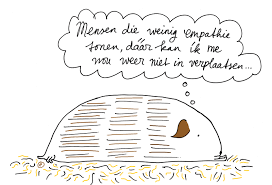 Mensen die weinig empathie
tonen, dáár kan ik me
nou weer niet in verplaatsen...